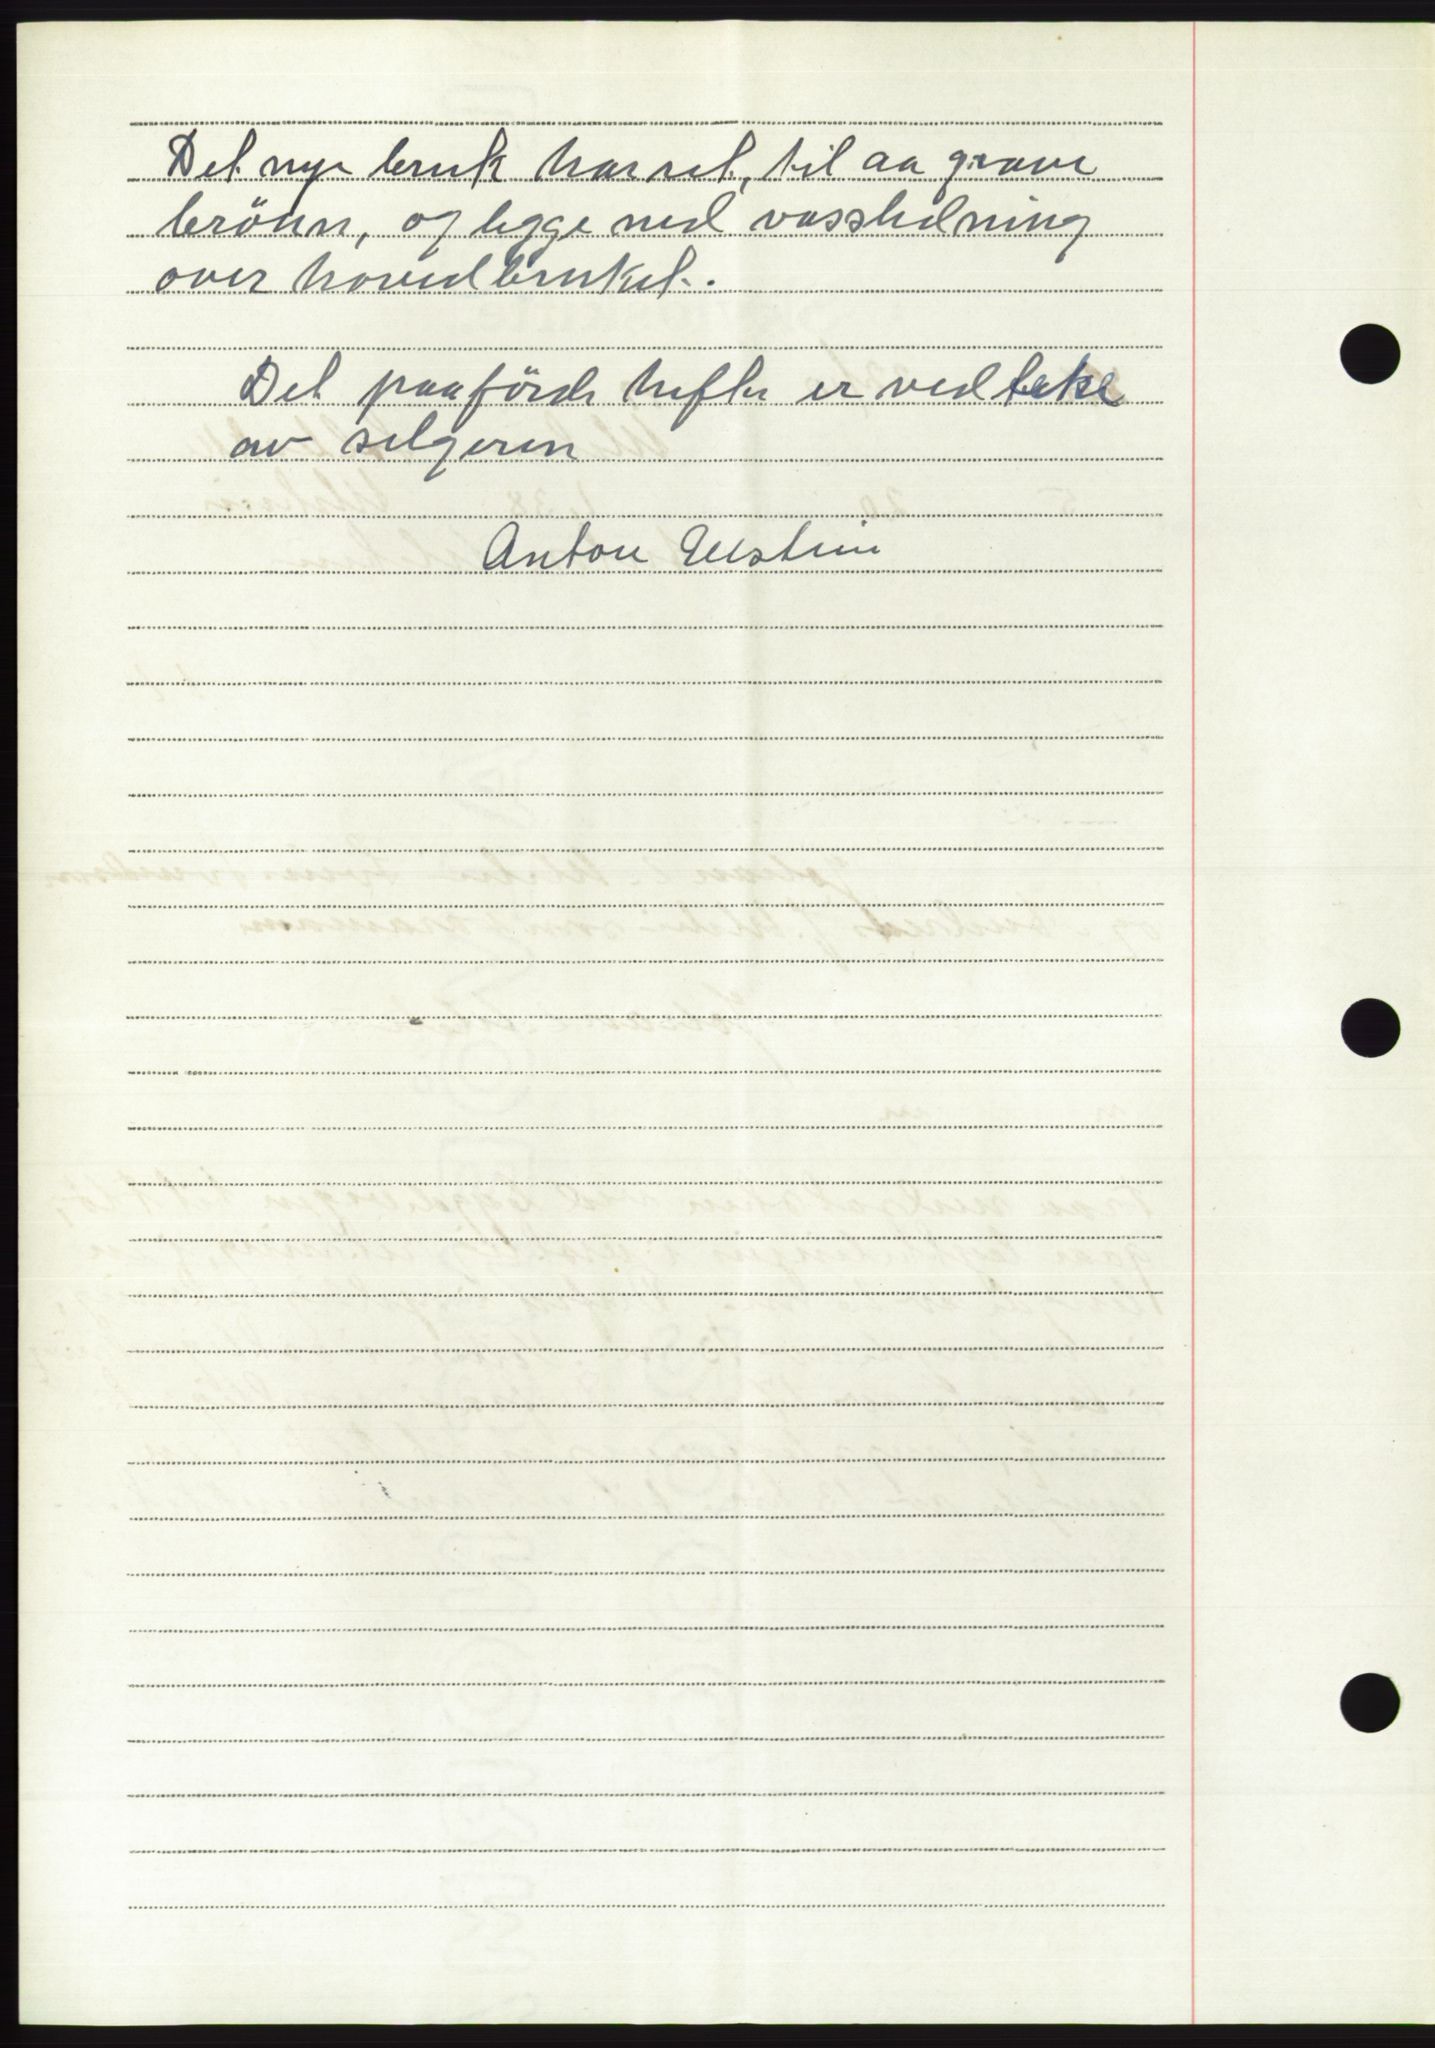 Det nye bruk har ret, til aa grave
brönn, og legge ned vassledning
over hovedbruket.
Det paaförde hefte er vedteke
av selgeren
Anton Ulstein